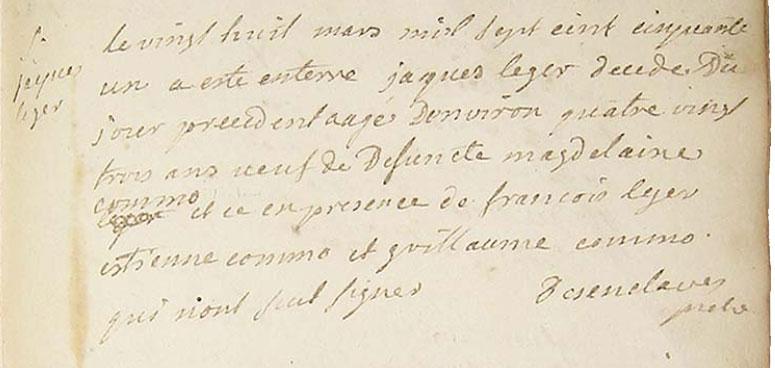 S
jaques
leger
Le vingt huit mars mil sept cent cinquante
un a este enterre jaques leger decede Du
jour precedent aagé Denviron quatre vingt
trois ans veuf de Defuncte magdelaine
commo
et ce en presence de francois leger
estienne commo et guillaume commo.
qui niont scut signer Desenclaves